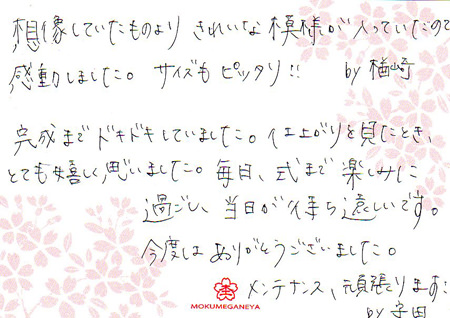 想像していたものより きれいな 模様が入っていたので
感動しました。 サイズも ピッタリ!! by 楢崎
完成まで ドキドキしていました。仕上がりを見たとき、
とても嬉しく思いました。毎日、式まで 楽しみに
過ごし、当日が待ち遠しいです。
今度は ありがとうございました。
メンテナンス、頑張ります!
MOKUMEGANEYA
by 守田